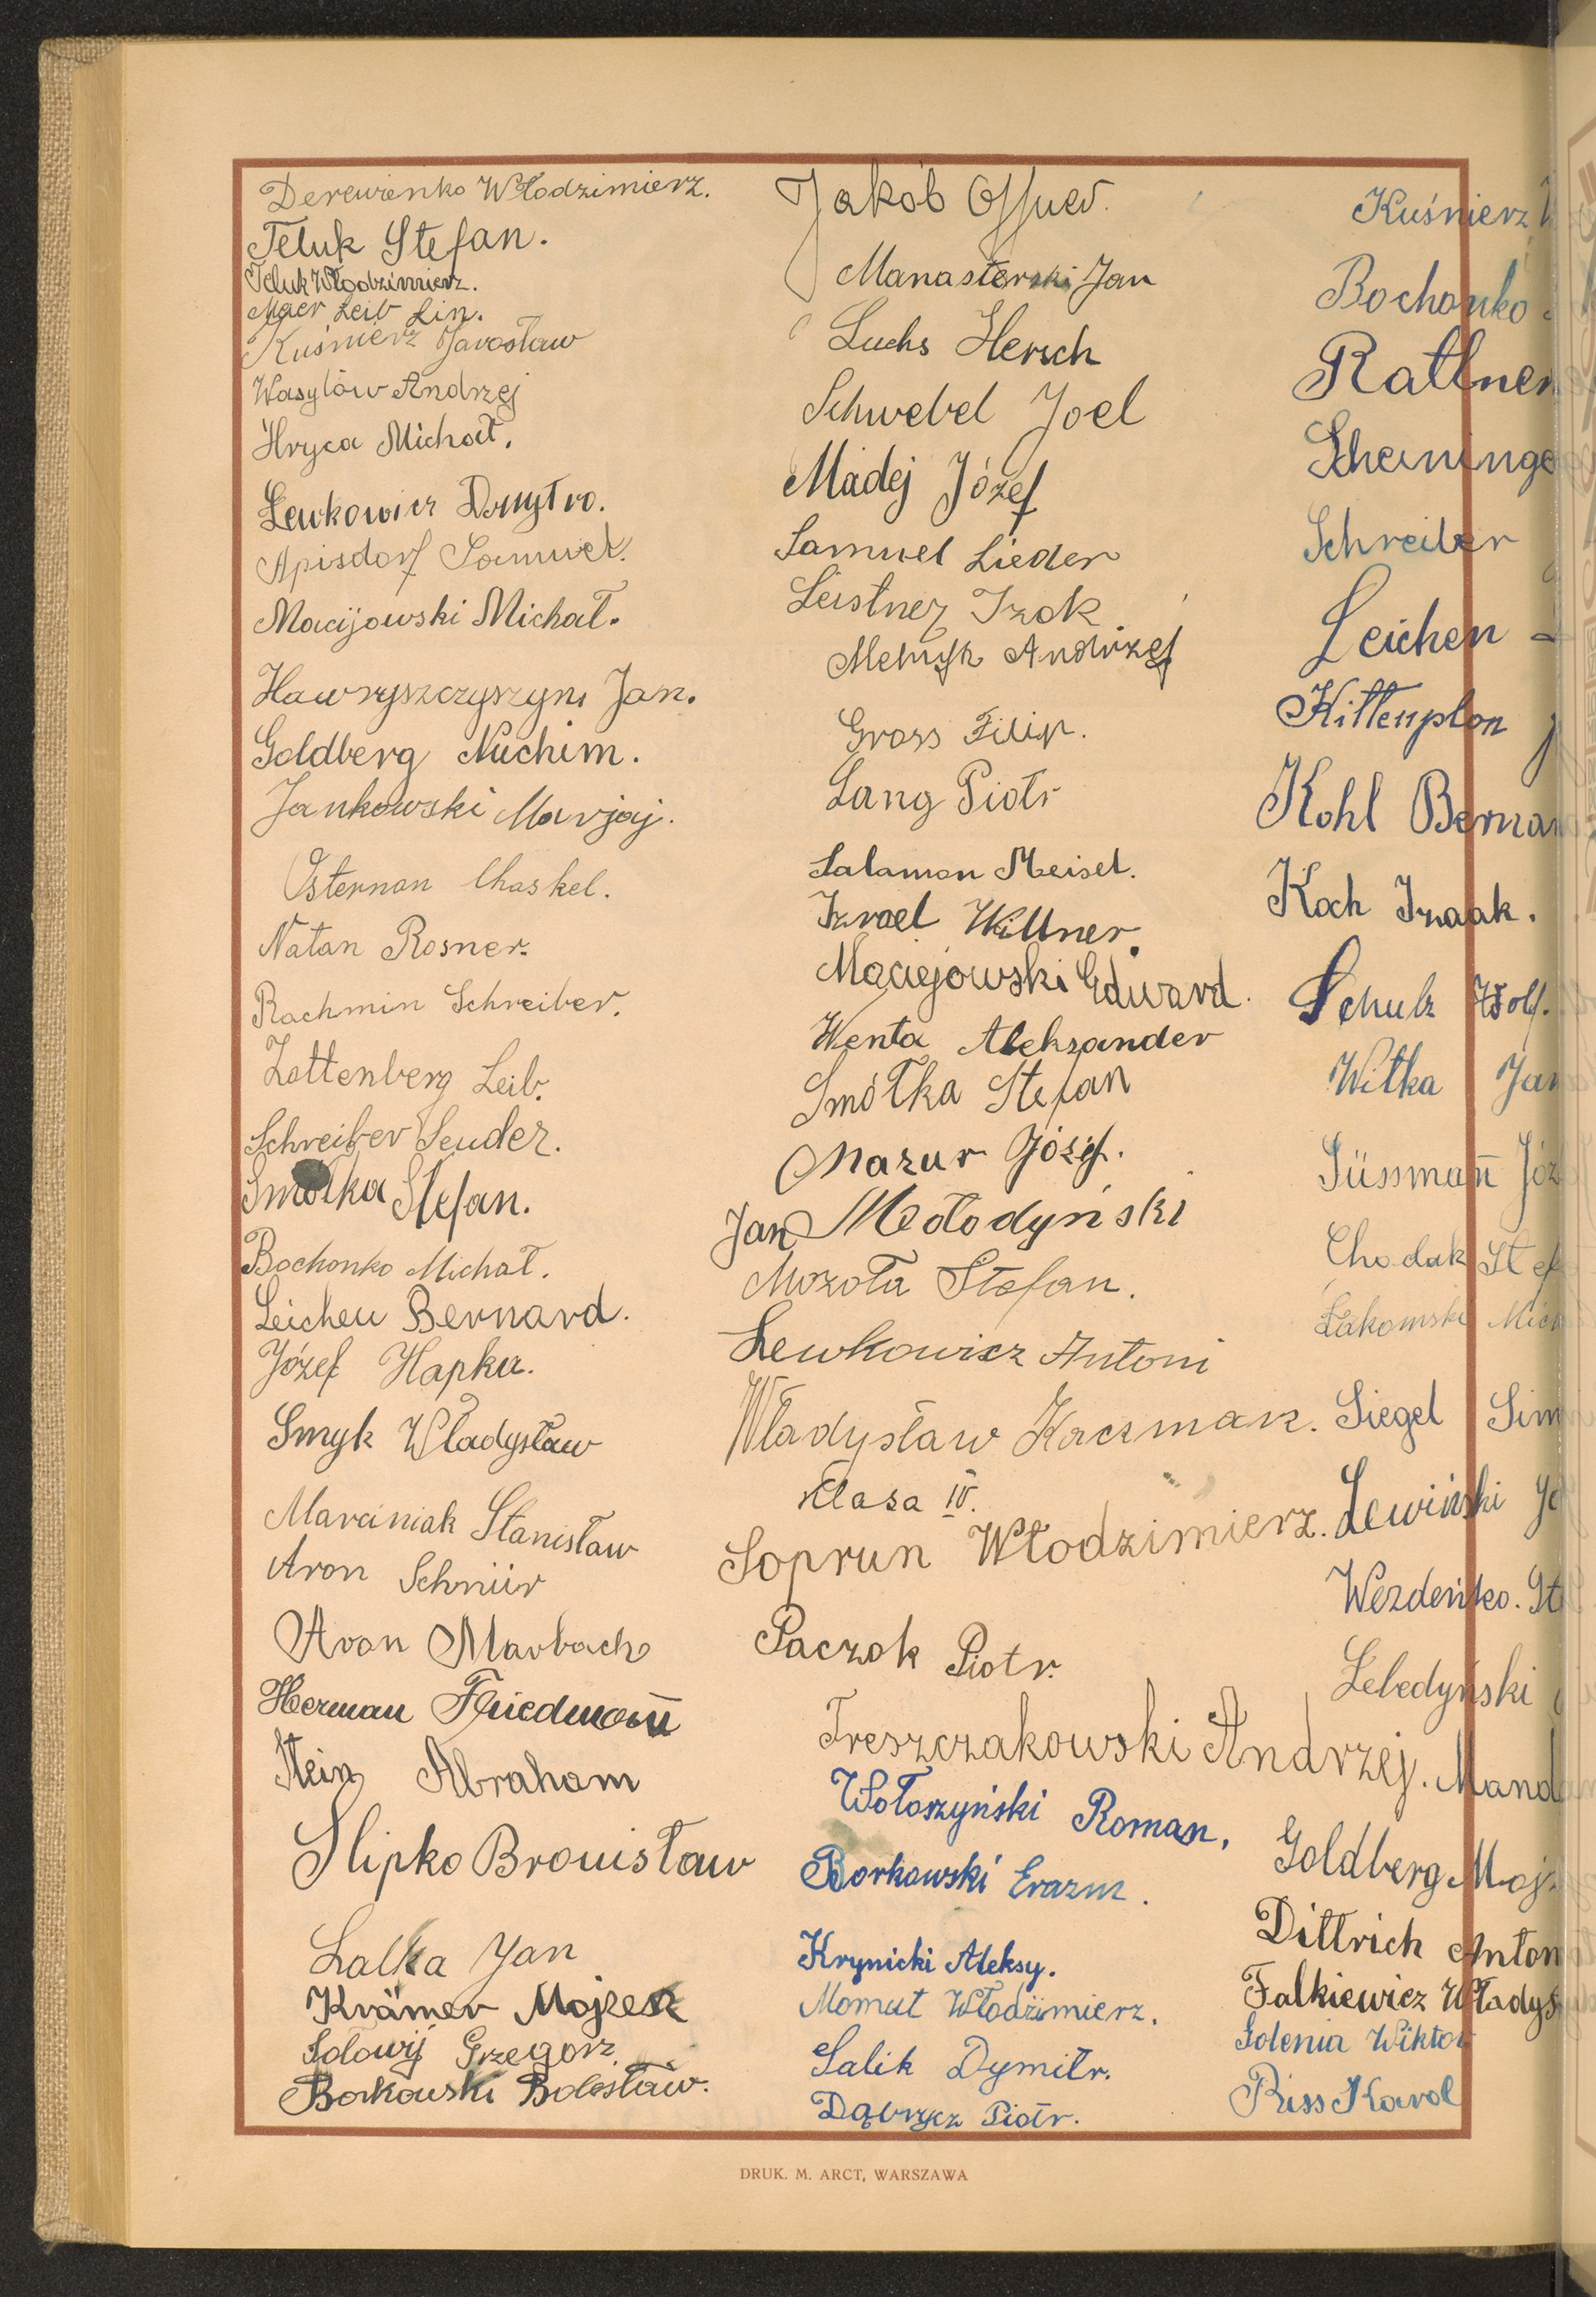 Derewienko Włodzimierz.
Teluk Stefan.
Teluk Włodzimierz.
Majer Leib Lin.
Kuśnierz Jarosław
Wasylów Andrzej
Hryca Michał.
Lewkowicz Dmytro.
Apisdorf Samuel.
Macijowski Michał.
Hawryszczyszyn Jan.
Goldberg Nuchim.
Jankowski
Osterman Chaskel.
Natan Rosner.
Rachmin Schreiber.
Zottenberg Leib.
Schreiber Sender.
Smółka Stefan.
Bochonko Michał.
Leichen Bernard.
Józef Hapka.
Smyk Władysław
Marciniak Stanisław
Aron Schnür
Aron Marbach
Herman Friedman̄
Stein Abraham
Slipko Bronisław
Lalka Jan
Krämer Mojżesz
Sołowij Grzegorz.
Borkowski Bolesław.
Jakób
Manasterski Jan
Luchs Hersch
Schwebel Joel
Madej Józef
Samuel Lieder
Leistner Izak
Melnyk Andrzej
Gross Filip.
Lang Piotr
Salamon Meisel.
Izrael Willner.
Maciejowski Edward.
Wenta Aleksander
Smółka Stefan
Mazur Józef.
Jan Mołodyński
Mozoła Stefan.
Lewkowicz Antoni
Władysław Kaczmar.
Klasa IV.
Soprun Włodzimierz.
Paczok Piotr.
Treszczakowski Andrzej.
Wołoszyński Roman.
Borkowski Erazm.
Krynicki Aleksy.
Momut Włodzimierz.
Salik Dymitr.
Dąbrycz Piotr.
Kuśnierz
Bochonko
Rattner
Scheininge
Schreiber
Leichen
Kittenplon
Kohl Bernar
Koch Izaak.
Schulz Wolf.
Witka Jan
Süssman̄ Józ
Chodak Stef
Łakomski Mich
Siegel Sim
Lewiński Jó
Wezdeńko. St
Lebedyński
Mand
Goldberg Mojż
Dittrich Anton
Falkiewicz Władys
Golenia Wiktor
Riss Karol
DRUK. M. ARCT, WARSZAWA